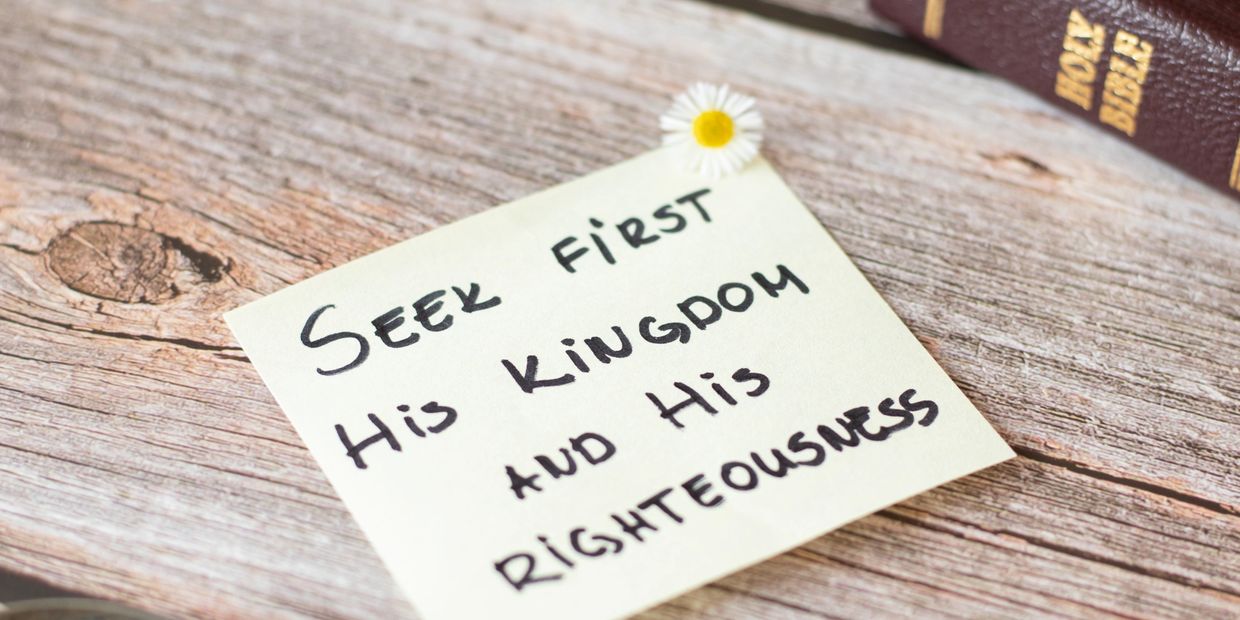 HOLY
BIBLE
SEEK FIRST
HiS KiNGDOM
AND HiS
RiGHTEOUSNESS